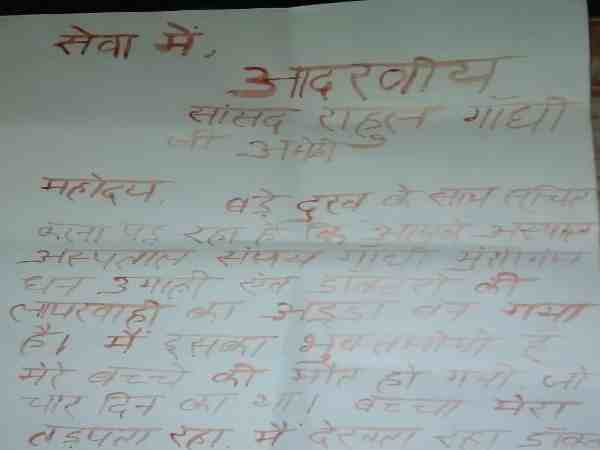 सेवा में,
आदरनीय
सांसद राहुल गाँधी
जी अमेठी
महोदय, बड़े दुख के साथ सूचित
करना पड़ रहा है कि आपके अस्पताल
अस्पताल संजय गाँधी मुंशीगंज
धन उगाही एवं डाक्टरो की
लापरवाही का अड्डा बन गया
है। मैं इसका भुक्तभोगी हूँ
मेरे बच्चे की मौत हो गयी जो
चार दिन का था। बच्चा मेरा
तड़पता रहा, मैं देखता रहा